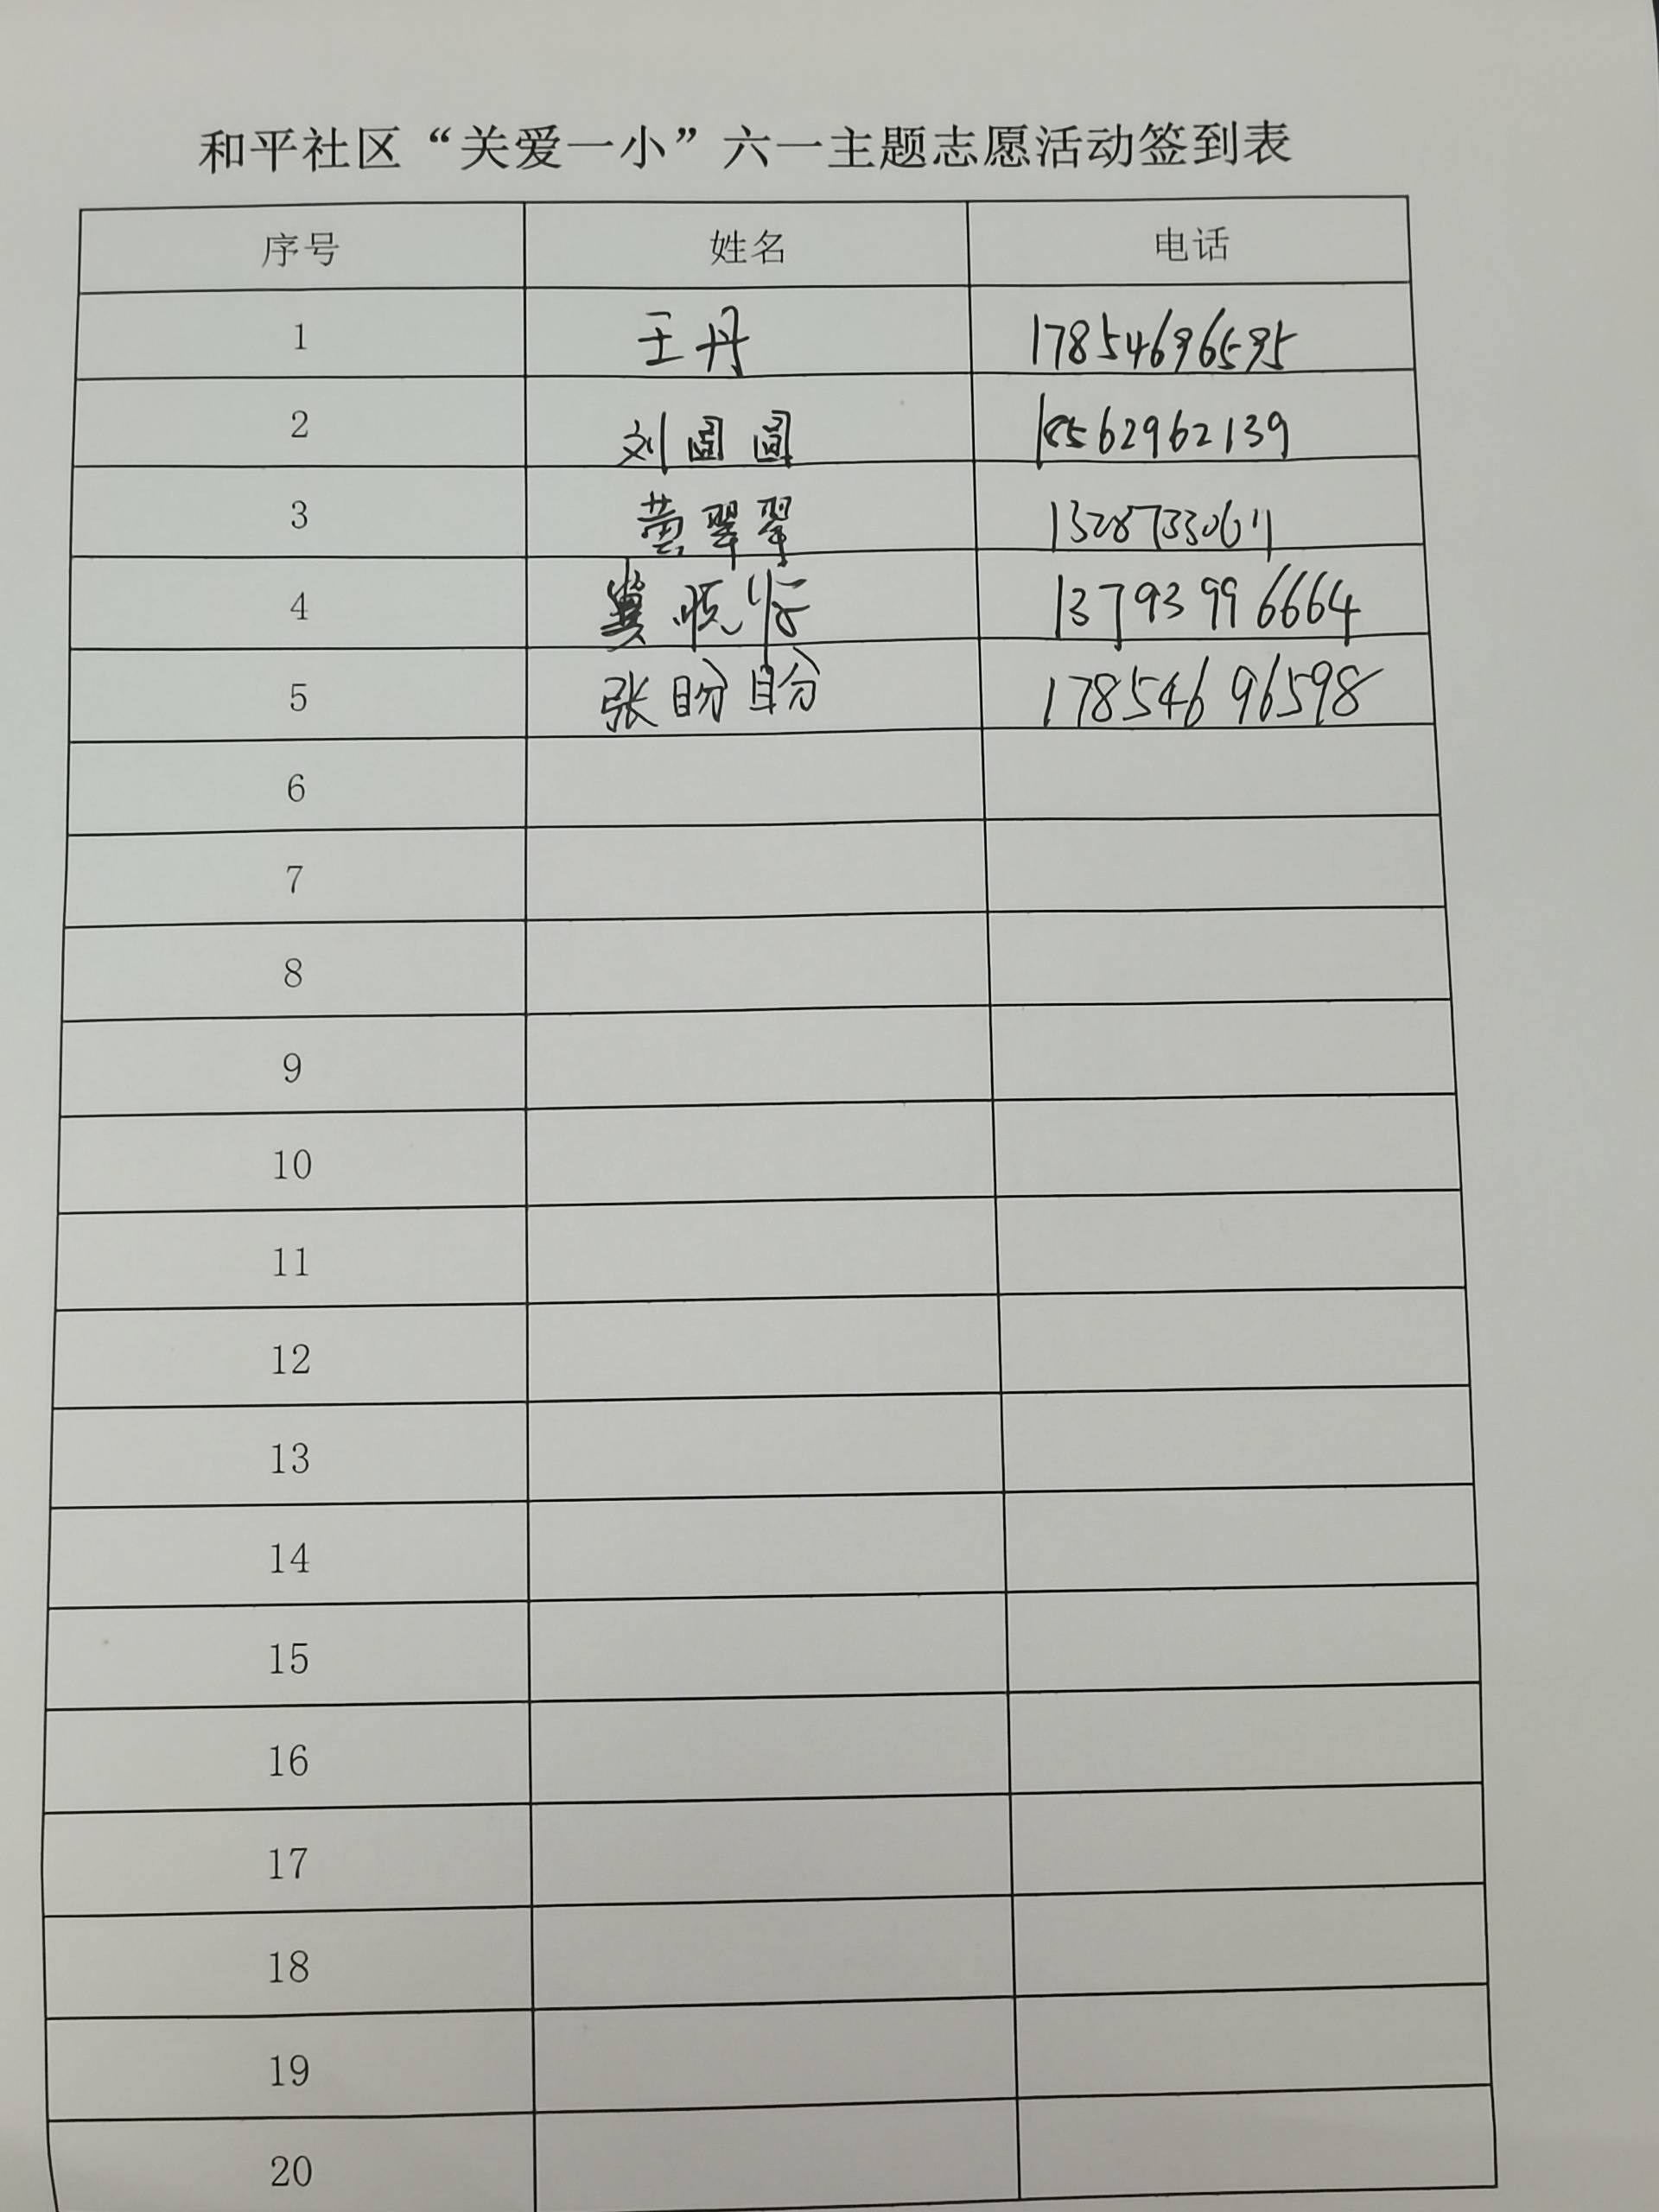 和平社区“关爱一小”六一主题志愿活动签到表
序号 姓名 电话
1 王丹 17854696595
2 刘圆圆 18562962139
3 黄翠翠 15287330611
4 冀 13793996664
5 张盼盼 17854696598
6
7
8
9
10
11
12
13
14
15
16
17
18
19
20